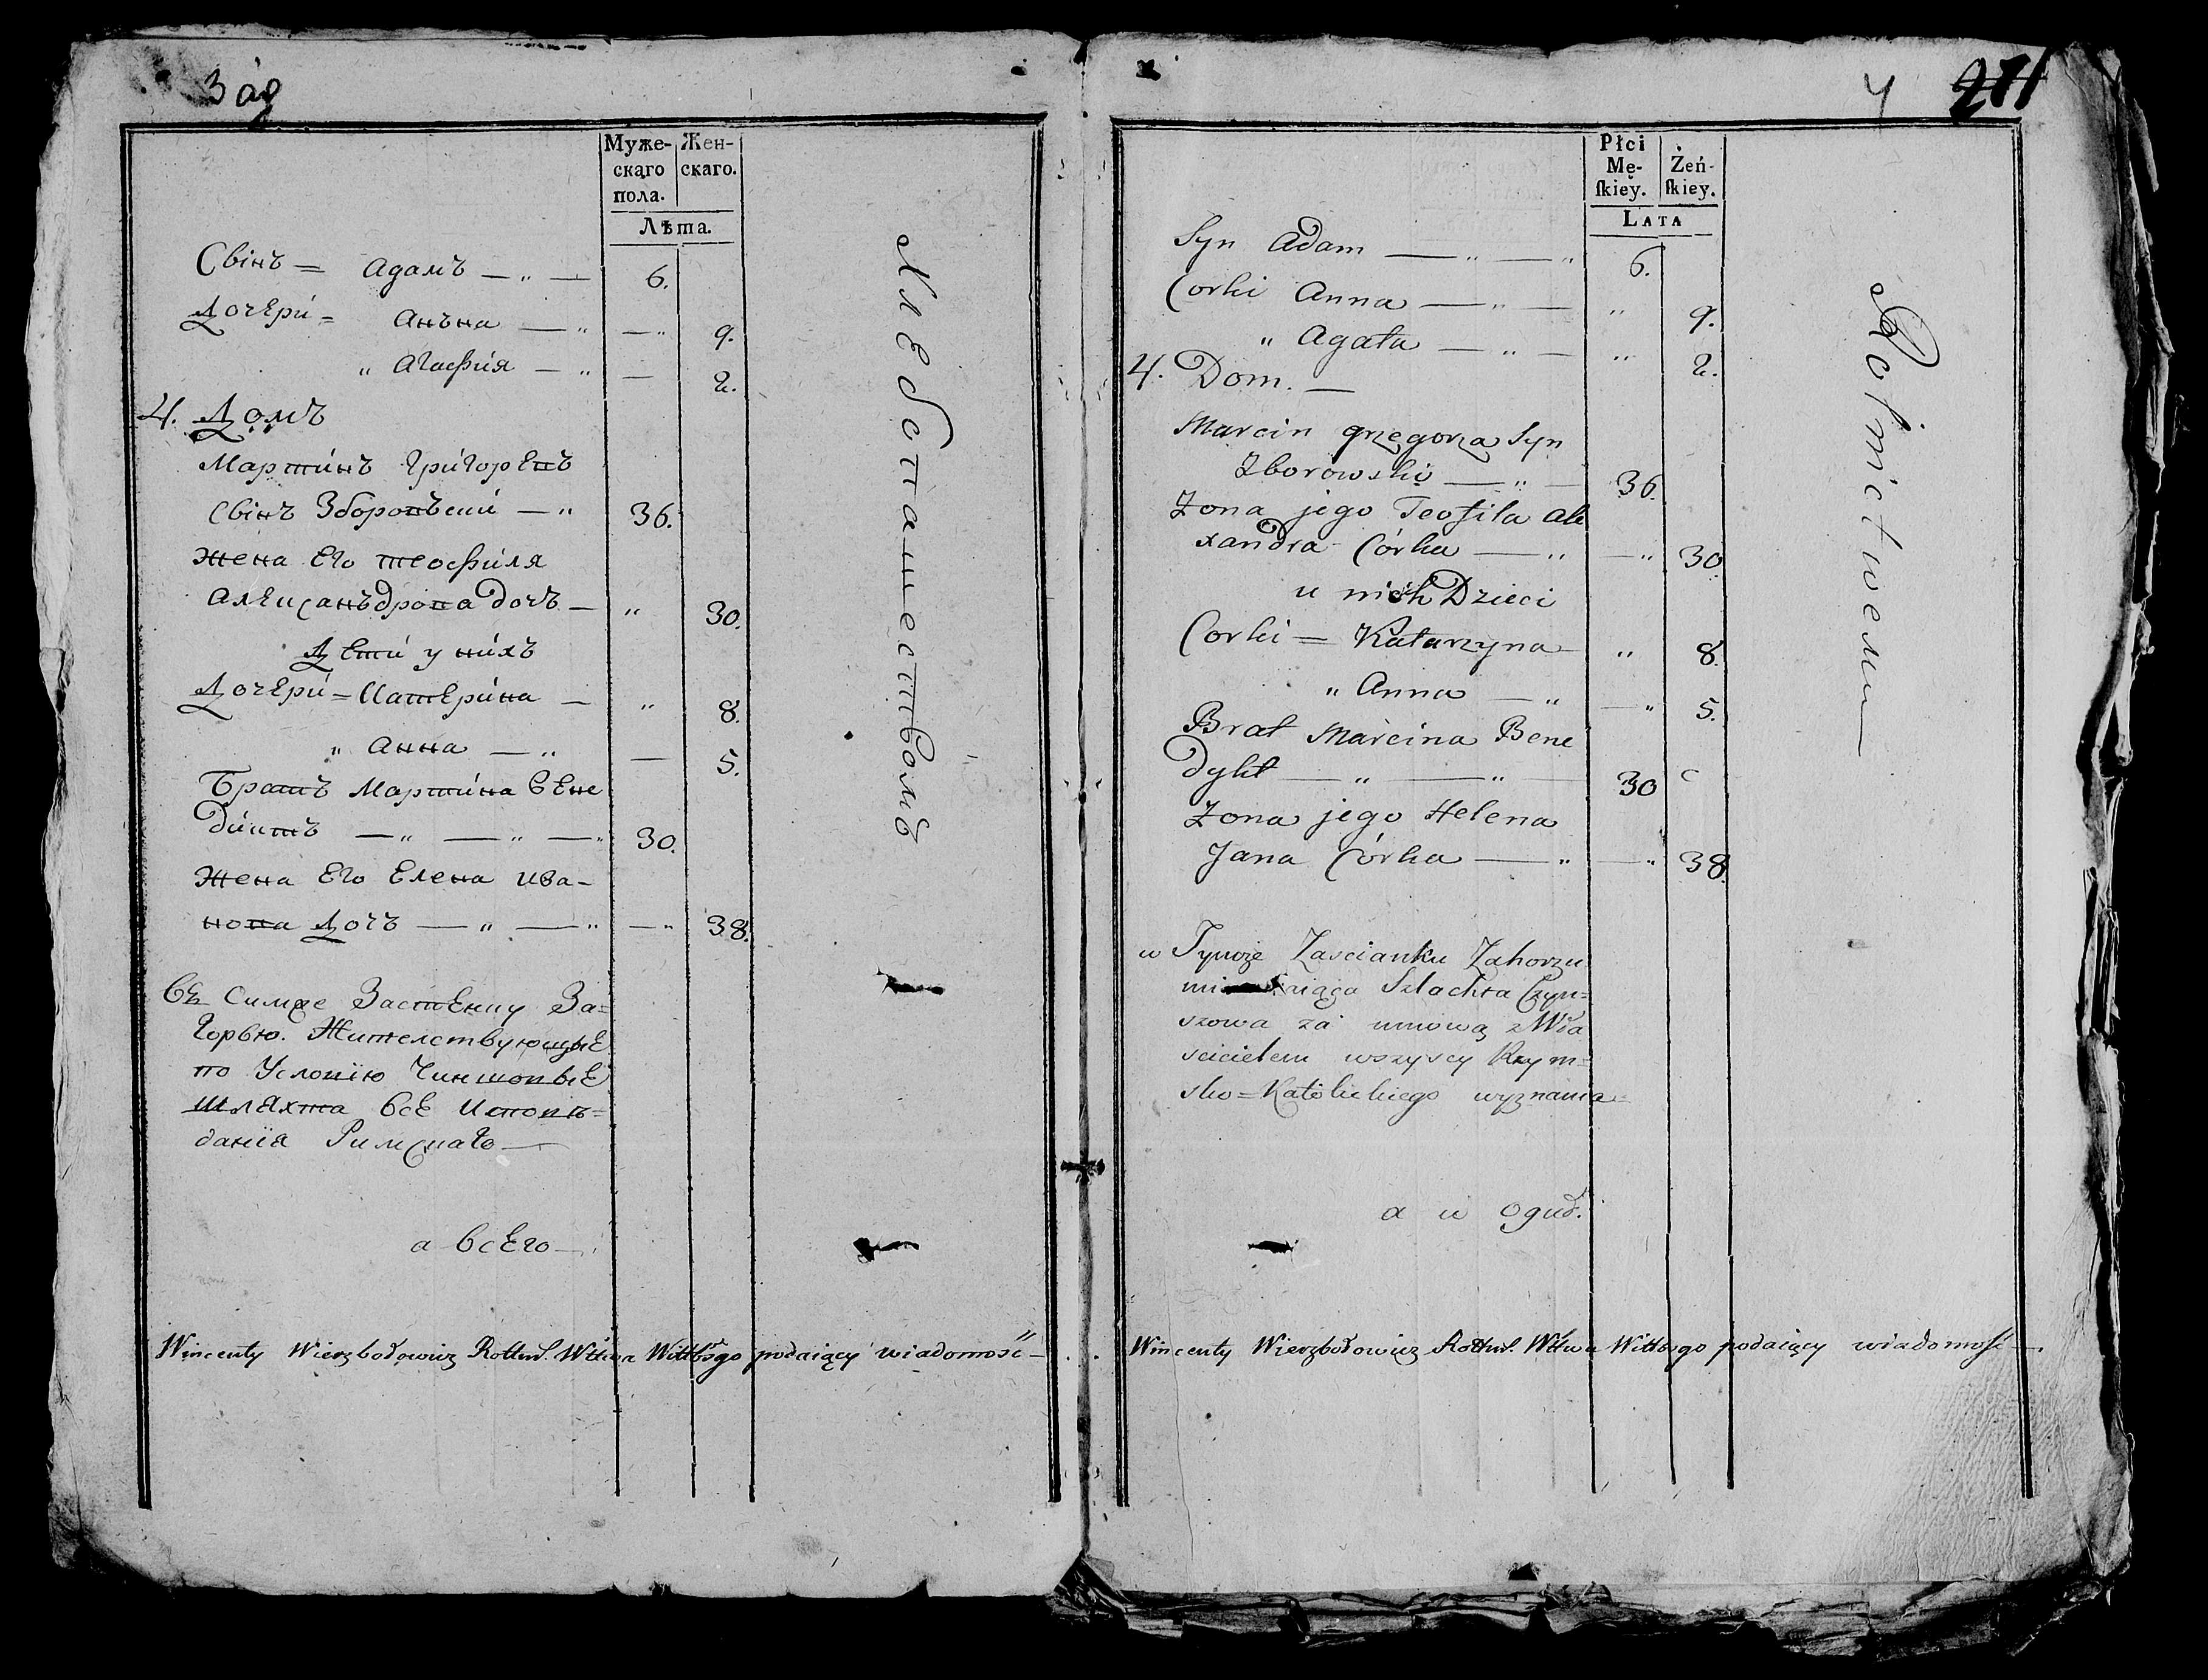 3 ад
Муже-
скаго
пола.
Жен-
скаго.
Лѣта.
Свінъ = Адамъ — „ — 6.
Дочери = Анъна — „ — „ 9.
„ Агафия — „ — 2.
4. Домъ
Мартинъ Григоревъ
Свінъ Зборовъски — „ 36.
Жена Его теофиля
Александрова дочъ — „ 30.
Дети у нихъ
Дочери = Катерина — „ 8.
„ Анна — „ — 5.
Братъ Мартина Вене
диктъ — „ — „ — „ 30.
Жена Его Елена Ива-
нова дочъ — „ — „ — „ 38.
Хлебопашествомъ
Въ Симже Застенку За=
горью. Жителствующые
по Условїю Чиншовые
шляхта все Исповѣ=
данїя Римскаго —
а всего —
Wincenty Wierzbołowicz Rottm. Wttwa Wittbsgo podaiący wiadomość —
4 211
Płci
Mę-
ſkiey.
Żeń-
ſkiey.
Lata
Syn Adam — „ — „ 6.
Corki Anna — „ — „ 9.
„ Agata — „ — „ 2.
4. Dom. —
Marcin grzegorza Syn
Zborowski — „ — 36.
Zona jego Teofila Ale
xandra Córka — „ — „ 30
u nich Dzieci
Corki = Katarzyna — „ 8.
„ Anna — „ — „ 5.
Brat Marcina Bene
dykt — „ — „ — 30
Zona jego Helena
Jana Córka — „ — „ 38.
Rolnictwem
w Tymże Zascianku Zahorzu
Szlachta Czyn=
szowa za umową z Wła
scicielem wszyscy Rzym=
sko=Katolickiego wyznania
a w oguł.
Wincenty Wierzbołowicz Rottm. Wttwa Wittbsgo podaiący wiadomość —